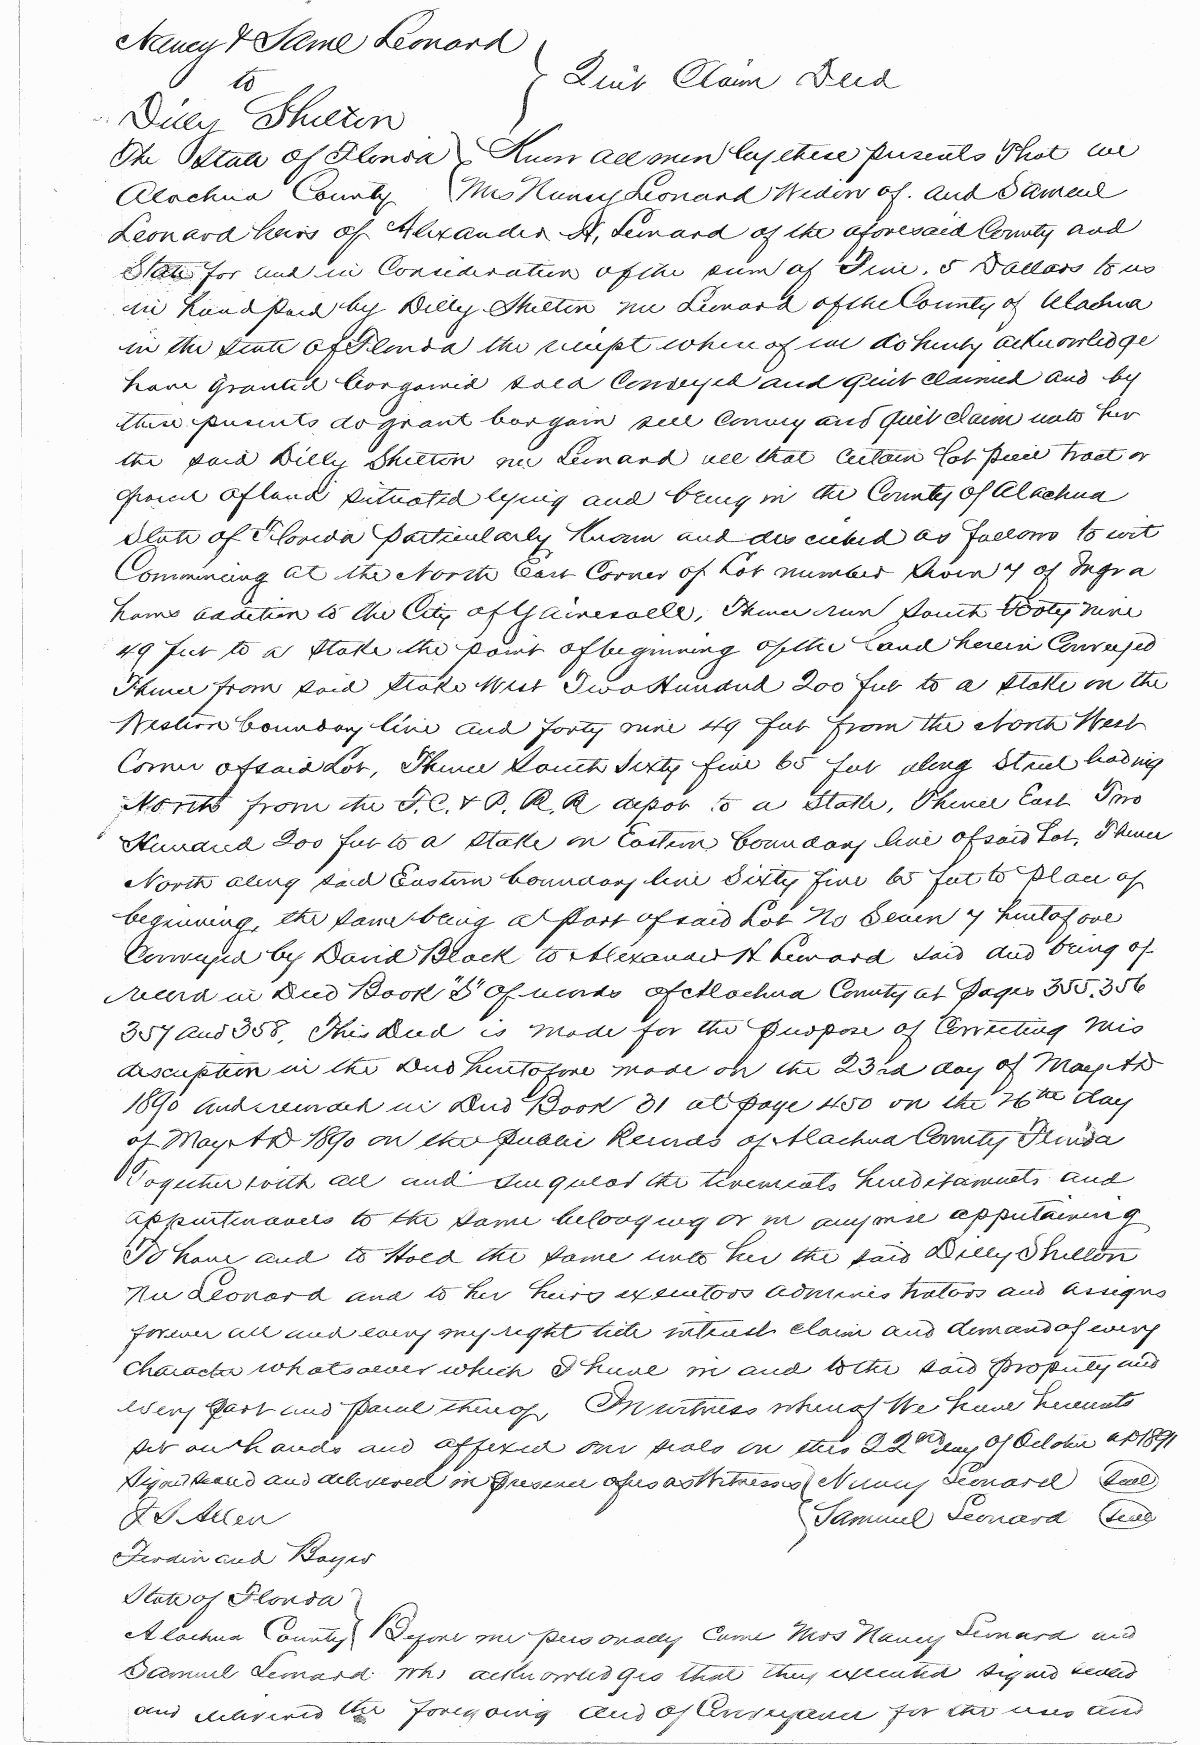 Nancy & Saml Leonard
to
Quit Claim Deed
Dilly Shelton
The State of Florida Know all men by these presents that we
Alachua County Mrs Nancy Leonard Widow of. and Samuel
Leonard heirs of Alexander H. Leonard of the aforesaid County and
State for and in Consideration of the sum of Five. 5 Dollars to us
in hand paid by Dilly Shelton nee Leonard of the County of Alachua
in the State of Florida the reciept where of we do hereby acknowledge
have granted bargained sold Conveyed and quit claimed and by
these presents do grant bargain sell convey and quit claim unto her
the said Dilly Shelton nee Leonard all that certain lot piece tract or
parcel of land situated lying and being in the County of Alachua
State of Florida particularly Known and described as follows to wit
Commencing at the North East Corner of Lot number Seven 7 of Ingra
hams addition to the City of Gainesville, Thence run South Foty nine
49 feet to a Stake the point of beginning of the land herein Conveyed
Thence from said Stake West Two Hundred 200 feet to a stake on the
Western boundary line and forty nine 49 feet from the North West
Corner of said Lot, Thence South Sixty five 65 feet along Street leading
North from the F. C. & P. R. R depot to a Stake, Thence East Two
Hundred 200 feet to a Stake on Eastern boundary line of said Lot, Thence
North along said Eastern boundary line Sixty five 65 feet to place of
beginning, the same being a part of said Lot No Seven 7 heretofore
Conveyed by David Black to Alexander H Leonard said deed being of
record in Deed Book "S" of records of Alachua County at pages 355. 356
357 and 358. This Deed is made for the purpose of Correcting mis
discription in the Deed heretofore made on the 23rd day of May AD
1890 and recorded in Deed Book 31 at page 450 on the 26th day
of May AD 1890 on the public Records of Alachua County Florida
Together with all and singular the tenements hereditaments and
appurtenances to the same belonging or in anywise appertaining
To have and to Hold the same unto her the said Dilly Shelton
nee Leonard and to her heirs executors administrators and assigns
forever all and every my right title interest claim and demand of every
Character whatsoever which I have in and to the said property and
every part and parcel thereof, In witness whereof We have hereunto
set our hands and affixed our seals on this 22nd day of October AD 1891
Signed sealed and delivered in presence of us as Witnesses Nancy Leonard Seal
J S Allen Samuel Leonard Seal
Ferdinand Bayer
State of Florida
Alachua County Before me personally came Mrs Nancy Leonard and
Samuel Leonard who acknowledges that they executed signed sealed
and delivered the foregoing deed of Conveyance for the uses and